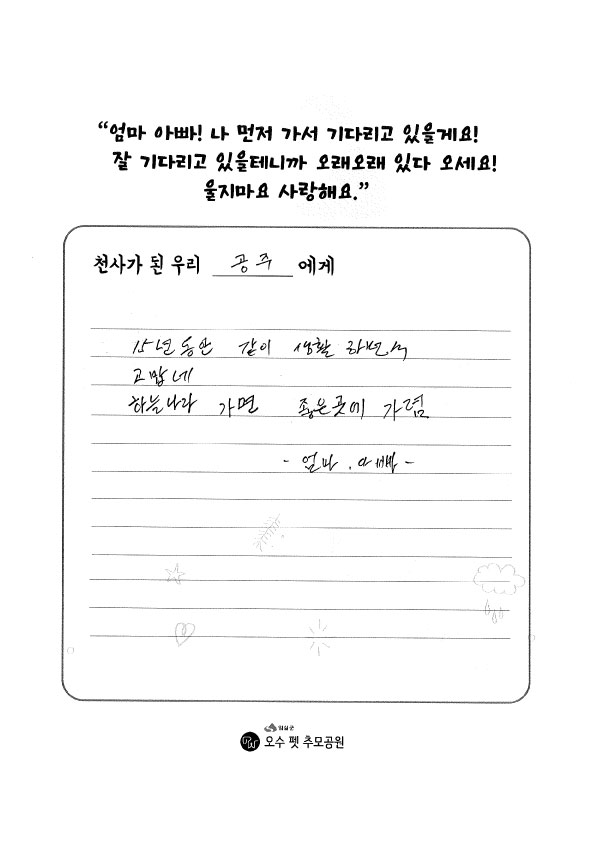 “엄마 아빠! 나 먼저 가서 기다리고 있을게요!
잘 기다리고 있을테니까 오래오래 있다 오세요!
울지마요 사랑해요.”
천사가 된 우리 공주 에게
15년동안 같이 생활 하면서
고맙네
하늘나라 가면 좋은곳에 가렴
- 엄마, 아빠 -
임실군
오수 펫 추모공원